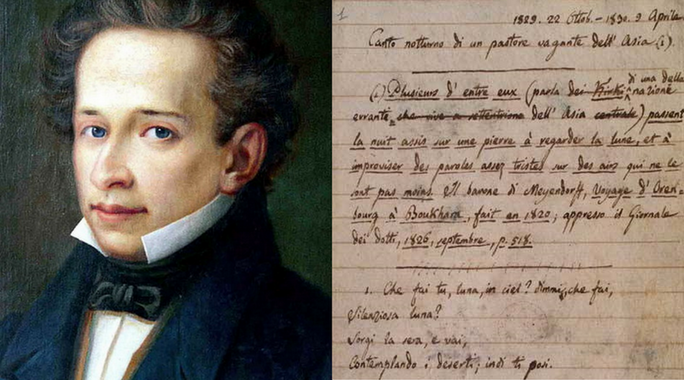 1
1829. 22 Ottob. - 1830. 9 Aprile.
Canto notturno di un pastore vagante dell'Asia (1).
(1) Plusieurs d'entre eux (parla dei Kirki di una delle nazione
errante, che vive a settentrione dell'Asia centrale) passent
la nuit assis sur une pierre à regarder la lune, et à
improviser des paroles assez tristes sur des airs qui ne le
sont pas moins. Il barone di Meyendorff, Voyage d'Oren-
bourg à Boukhara, fait en 1820; appresso il Giornale
dei dotti, 1826, septembre, p. 518.
1. Che fai tu, luna, in ciel? dimmi, che fai,
Silenziosa luna?
Sorgi la sera, e vai,
Contemplando i deserti; indi ti posi.